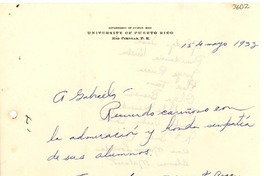 3602
GOVERNMENT OF PUERTO RICO
UNIVERSITY OF PUERTO RICO
RÍO PIEDRAS, P. R.
15 de mayo 1933
A Gabriela -
Recuerdo cariñoso con
la admiración y honda simpatía
de sus alumnos.